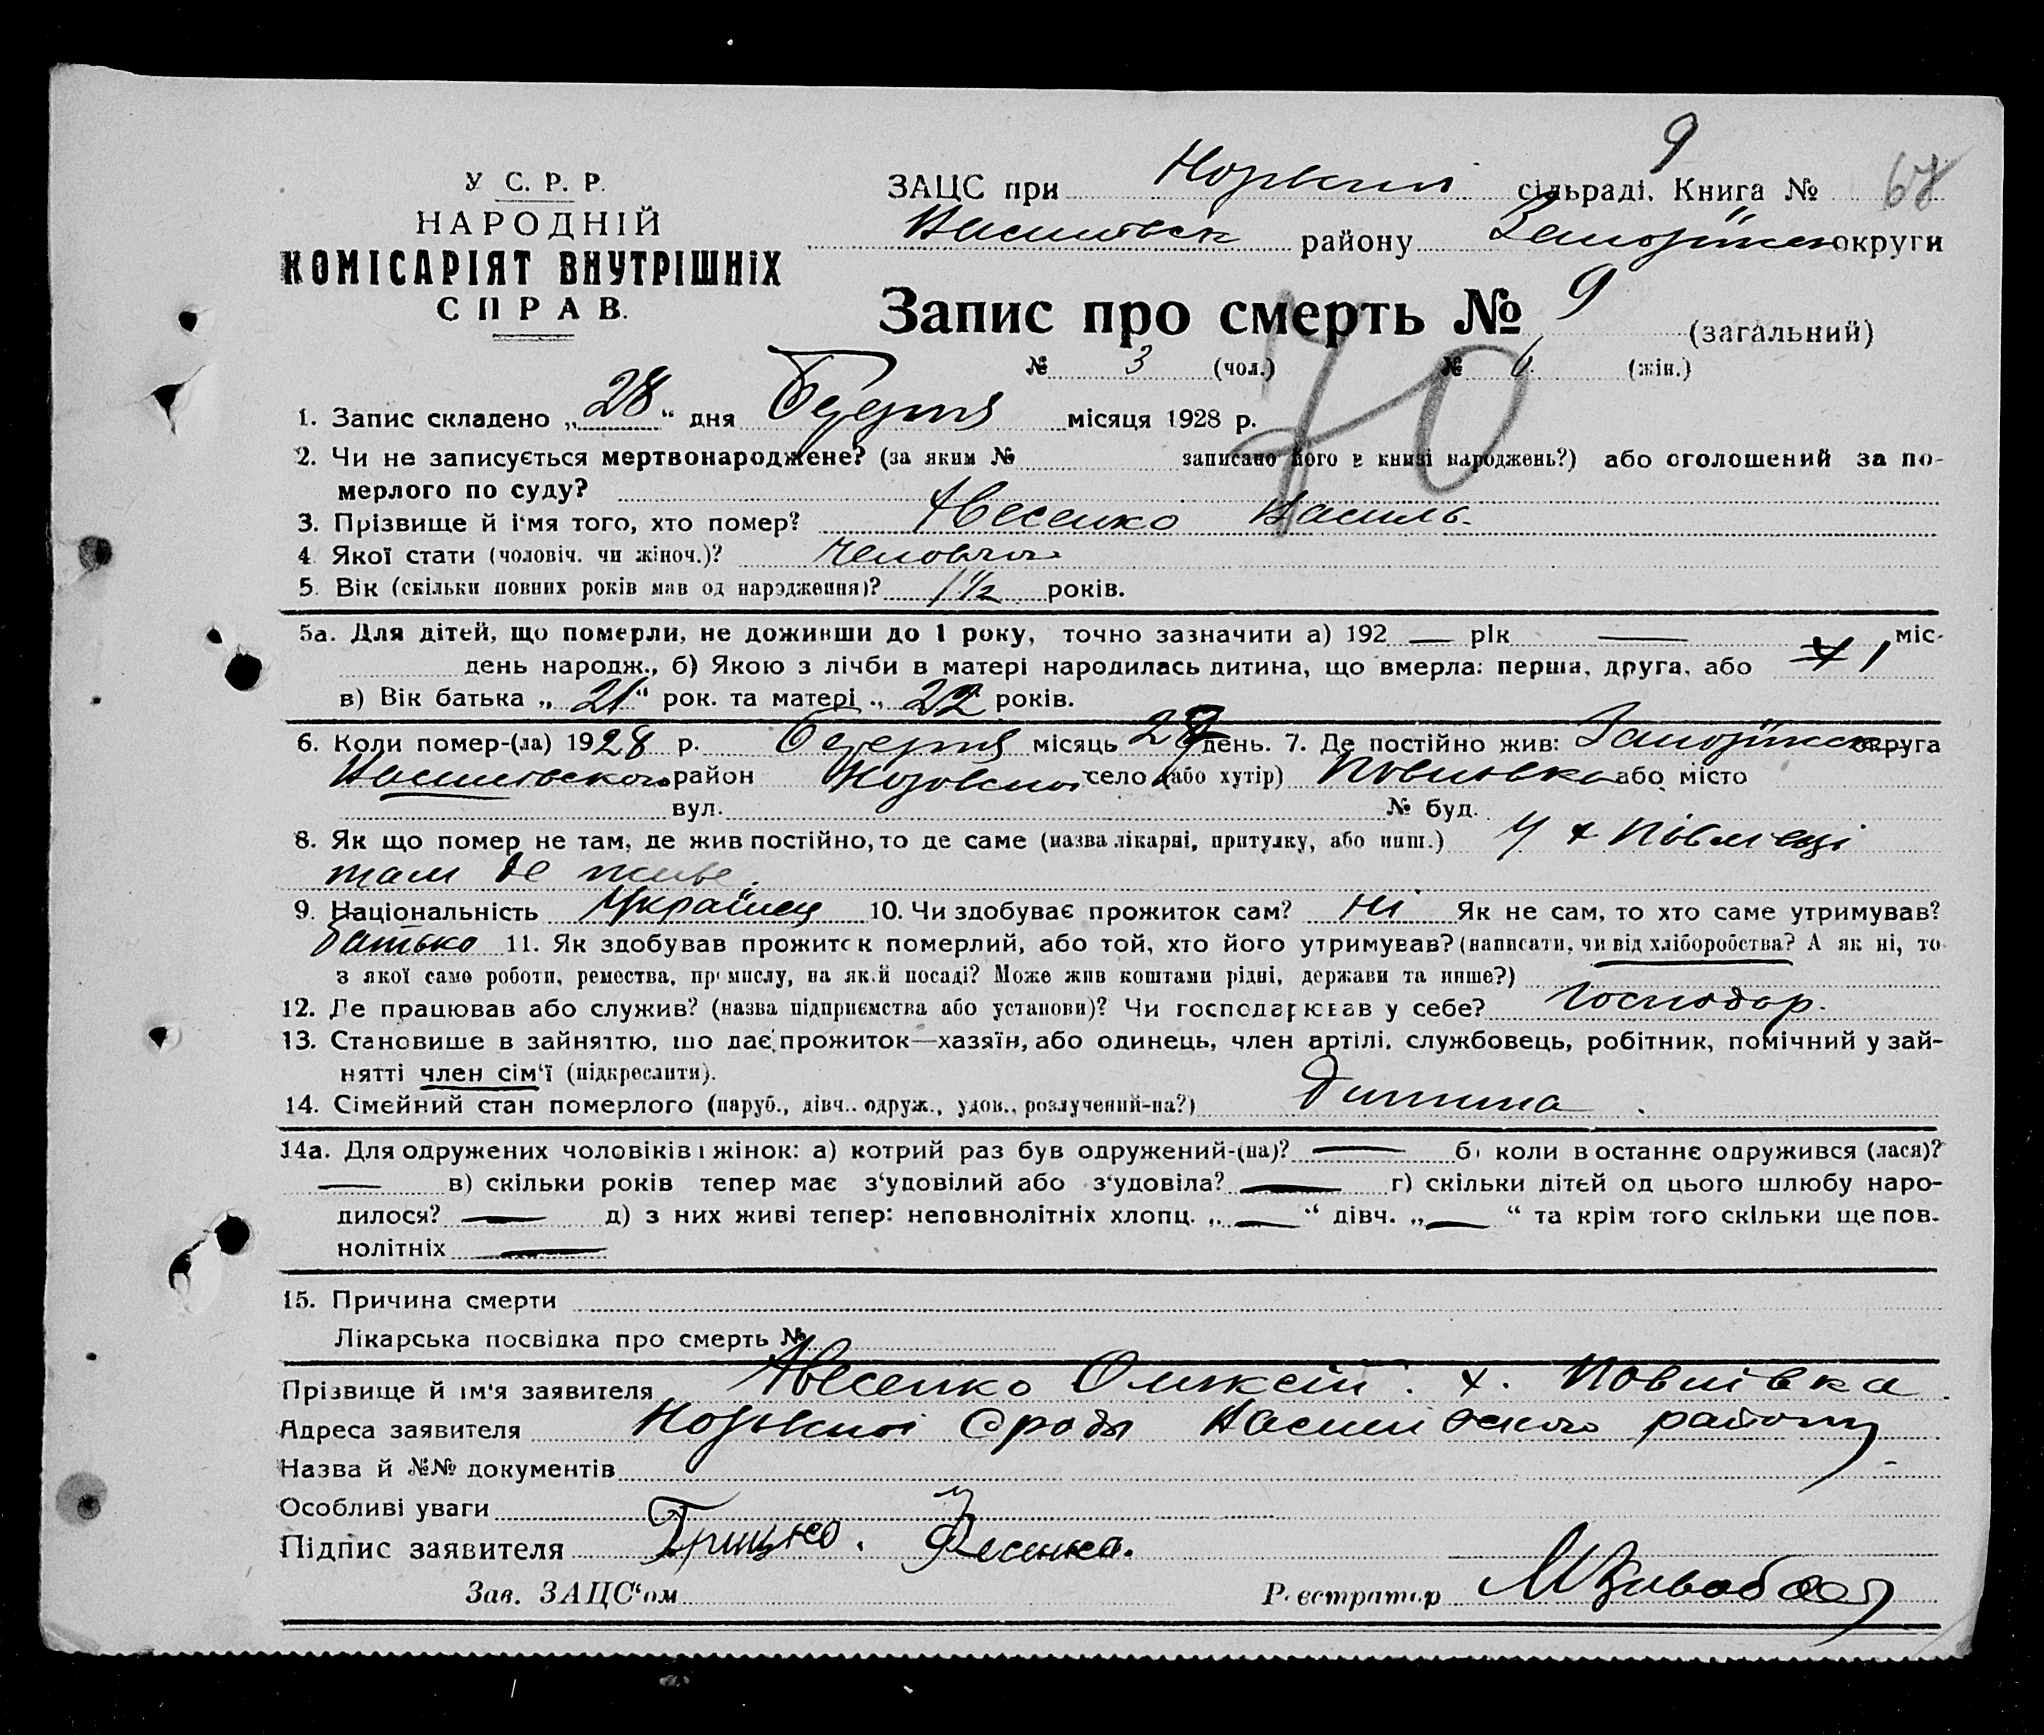 9
У С. Р. Р.
НАРОДНІЙ
КОМІСАРІЯТ ВНУТРІШНІХ
СПРАВ.
ЗАЦС при сільраді. Книга № 67
району округи
Запис про смерть № 9 (загальний)
№ 3 (чол.) № 6 (жін.)
70
1. Запис складено „28“ дня Березня місяця 1928 р.
2. Чи не записується мертвонароджене? (за яким № записано його в книзі народжень?) або оголошений за по-
мерлого по суду?
3. Прізвище й і‘мя того, хто помер? Фесенко Василь.
4 Якої стати (чоловіч. чи жіноч.)?
5. Вік (скільки повних років мав од народження)? 1 1/2 років.
5а. Для дітей, що померли, не доживши до 1 року, точно зазначити а) 192 — рік — міс-
день народж., б) Якою з лічби в матері народилась дитина, що вмерла: перша, друга, або 1
в) Вік батька „21“ рок. та матері „22 років.
6. Коли помер-(ла) 1928 р. Березня місяць день. 7. Де постійно жив: округа
район село (або хутір) або місто
вул. № буд.
8. Як що помер не там, де жив постійно, то де саме (назва лікарні, притулку, або инш.) У х
там де живе.
9. Національність Українец 10. Чи здобуває прожиток сам? Ні Як не сам, то хто саме утримував?
батько 11. Як здобував прожиток померлий, або той, хто його утримував? (написати, чи від хліборобства? А як ні, то
з якої саме роботи, ремества, промислу, на якій посаді? Може жив коштами рідні, держави та инше?)
12. Де працював або служив? (назва підприємства або установи)? Чи господарював у себе? Господар.
13. Становише в зайняттю, що дає прожиток—хазяїн, або одинець, член артілі, службовець, робітник, помічний у зай-
нятті член сім‘ї (підкреслити).
14. Сімейний стан померлого (паруб., дівч.. одруж., удов., розлучений-на?) Дитина.
14а. Для одружених чоловіків і жінок: а) котрий раз був одружений-(на)? — б) коли в останнє одружився (лася)?
— в) скільки років тепер має з‘удовілий або з‘удовіла? — г) скільки дітей од цього шлюбу наро-
дилося? — д) з них живі тепер: неповнолітніх хлопц. „—“ дівч. „—“ та крім того скільки ще пов-
нолітніх —
15. Причина смерти
Лікарська посвідка про смерть №
Прізвище й ім'я заявителя Фесенко Олексій. х. Повлівка.
Адреса заявителя району
Назва й №№ документів
Особливі уваги
Підпис заявителя Грицько. Фесенко.
Зав. ЗАЦС‘ом Реєстратор